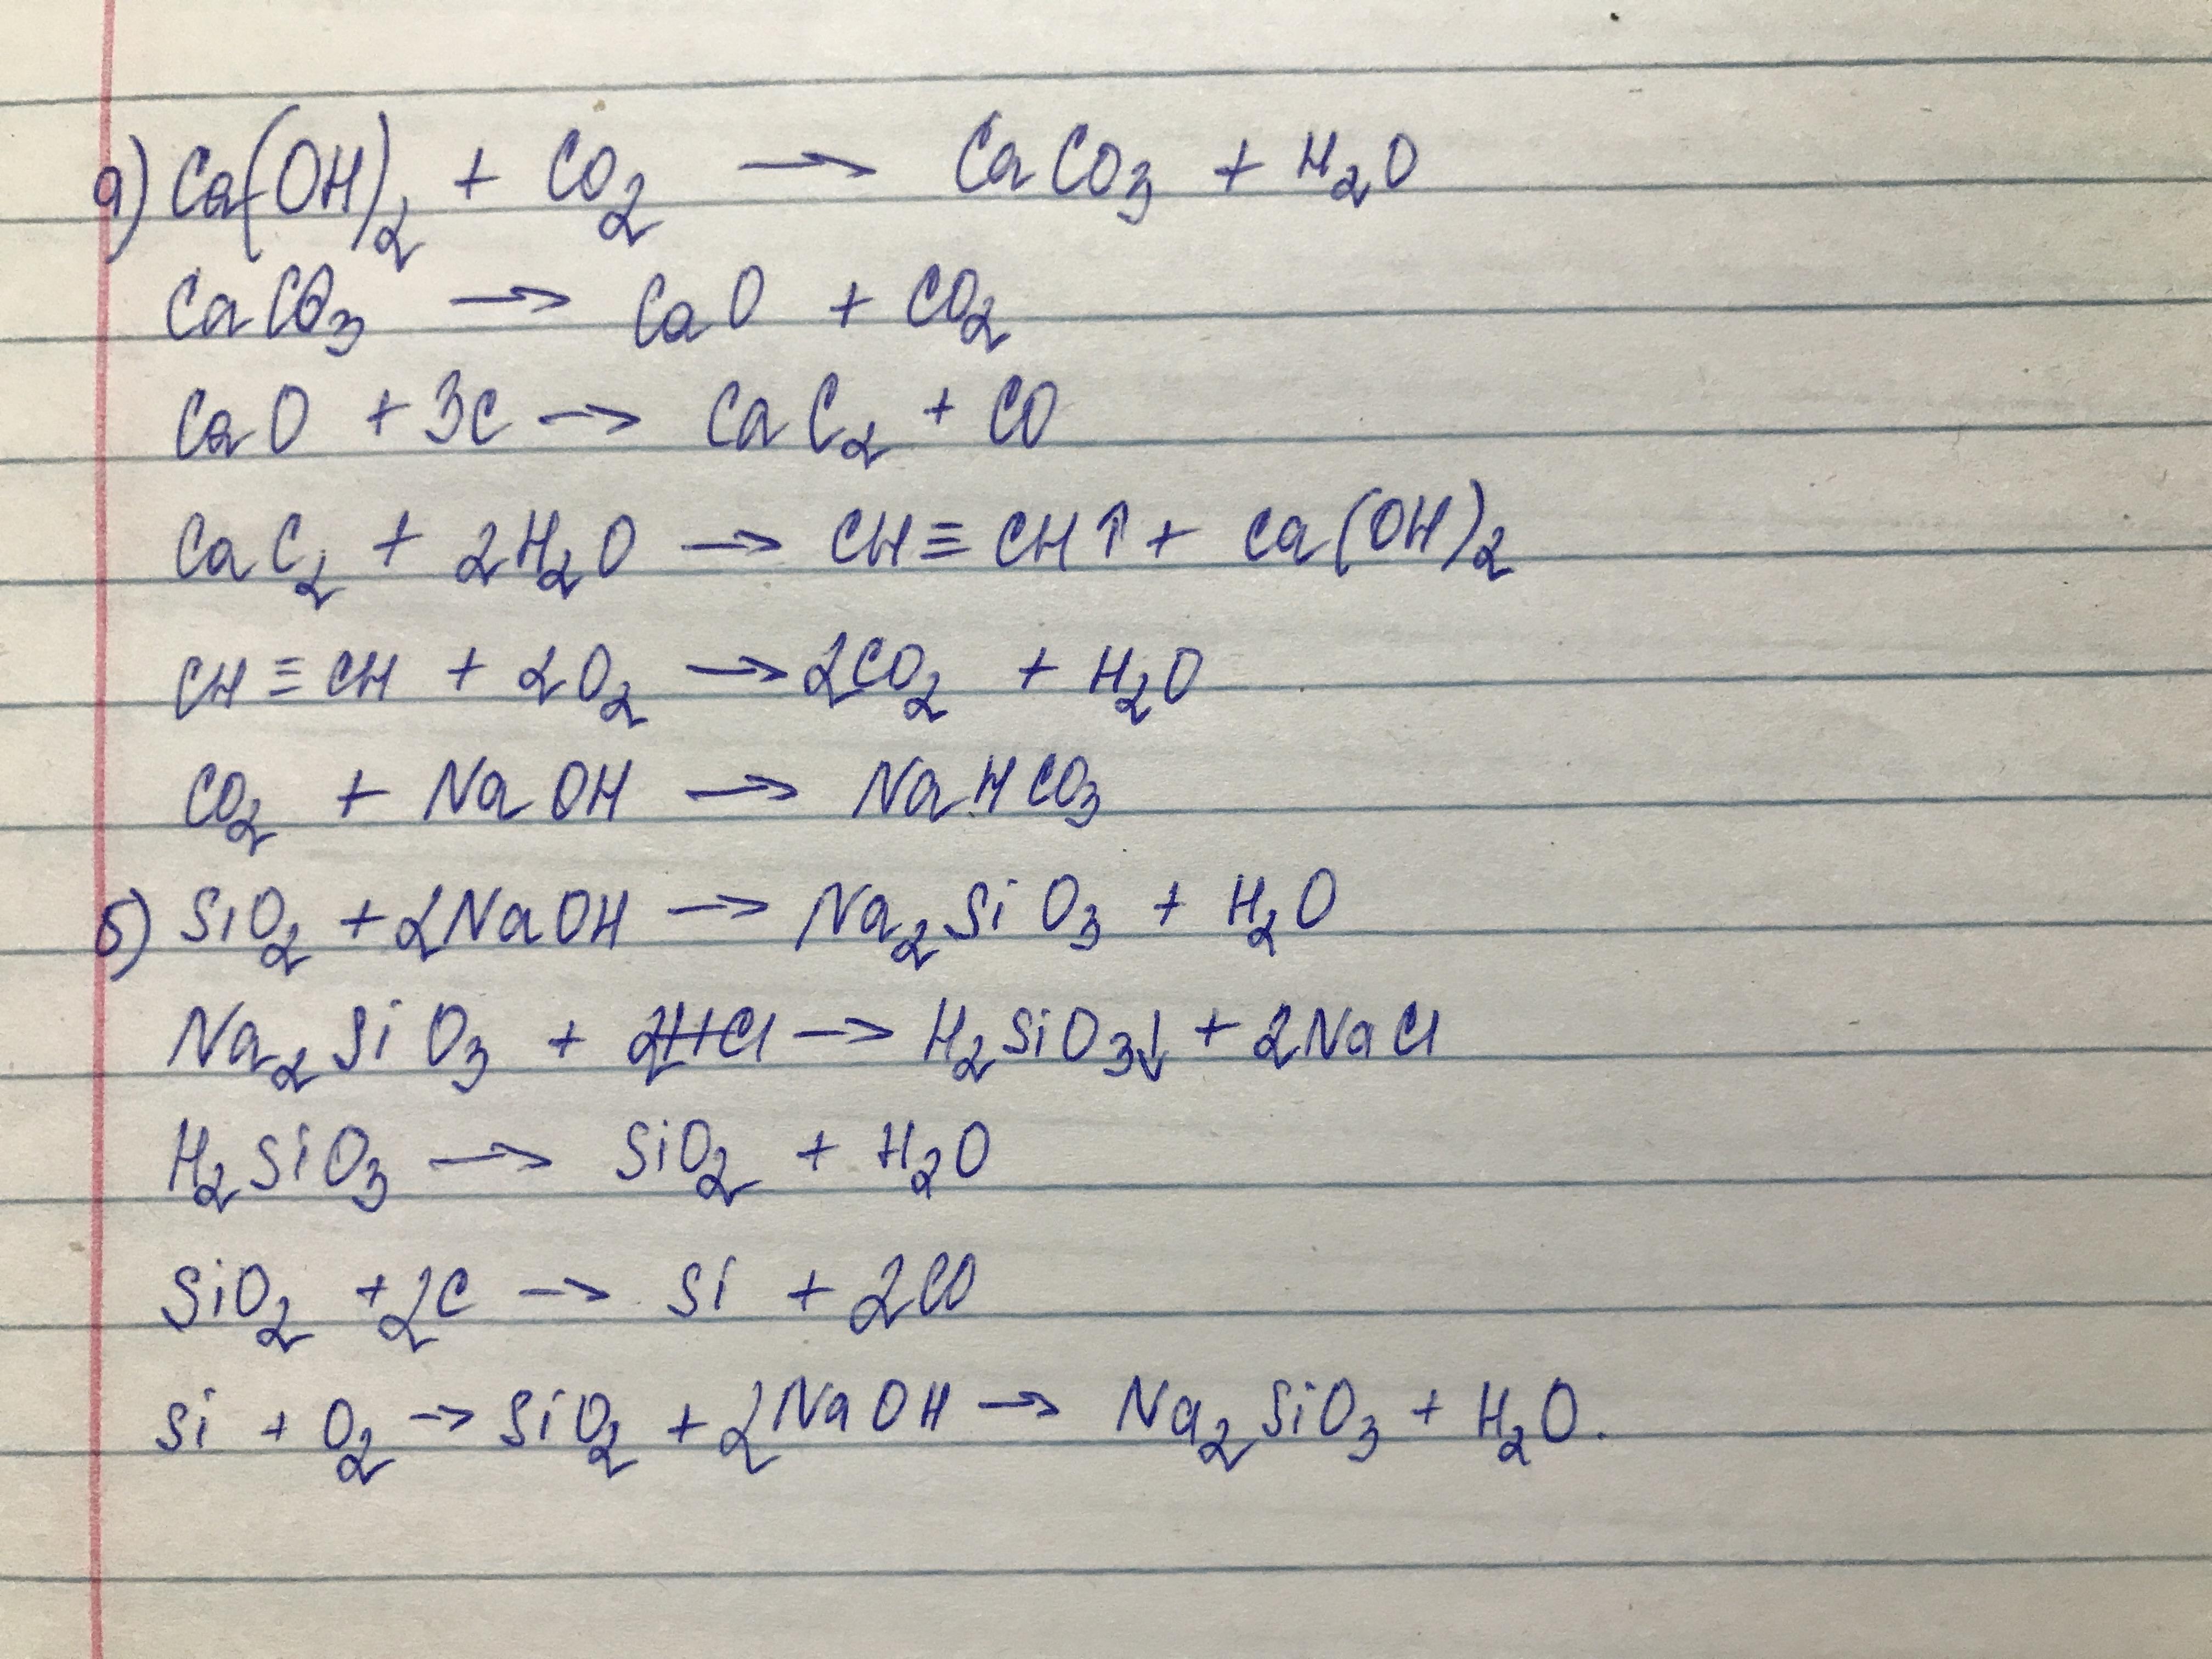 а) Ca(OH)₂ + CO₂ → CaCO₃ + H₂O
CaCO₃ → CaO + CO₂
CaO + 3C → CaC₂ + CO
CaC₂ + 2H₂O → CH≡CH↑ + Ca(OH)₂
CH≡CH + 2O₂ → 2CO₂ + H₂O
CO₂ + NaOH → NaHCO₃
б) SiO₂ + 2NaOH → Na₂SiO₃ + H₂O
Na₂SiO₃ + 2HCl → H₂SiO₃↓ + 2NaCl
H₂SiO₃ → SiO₂ + H₂O
SiO₂ + 2C → Si + 2CO
Si + O₂ → SiO₂ + 2NaOH → Na₂SiO₃ + H₂O.